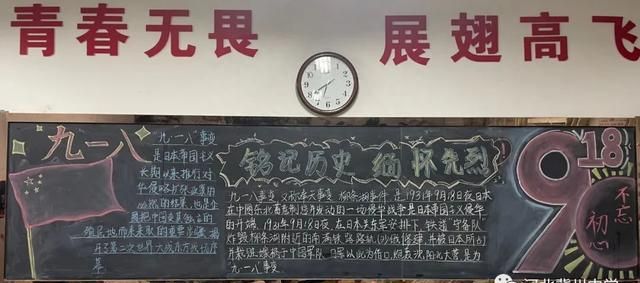 青春无畏 展翅高飞
九一八
"九一八"事变
是日本帝国主义
长期以来推行对
华侵略扩张政策的
必然的结果，也是企
图把中国变其独占的
殖民地而采取的重要步骤 揭
开了第二次世界大战东方战场序
幕
铭记历史 缅怀先烈
九一八事变 又称奉天事变 柳条湖事件 是1931年9月18日夜日本
在中国东北蓄意制造并发动的一场侵华战争是日本帝国主义侵华
的开端，1931年9月18日夜在日本关东军安排下，铁道 守备队
炸毁柳条湖附近的南满铁路路轨
并被日本所
日军以此为借口 炮轰沈阳北大营是为
九一八事变
918
不忘
初心